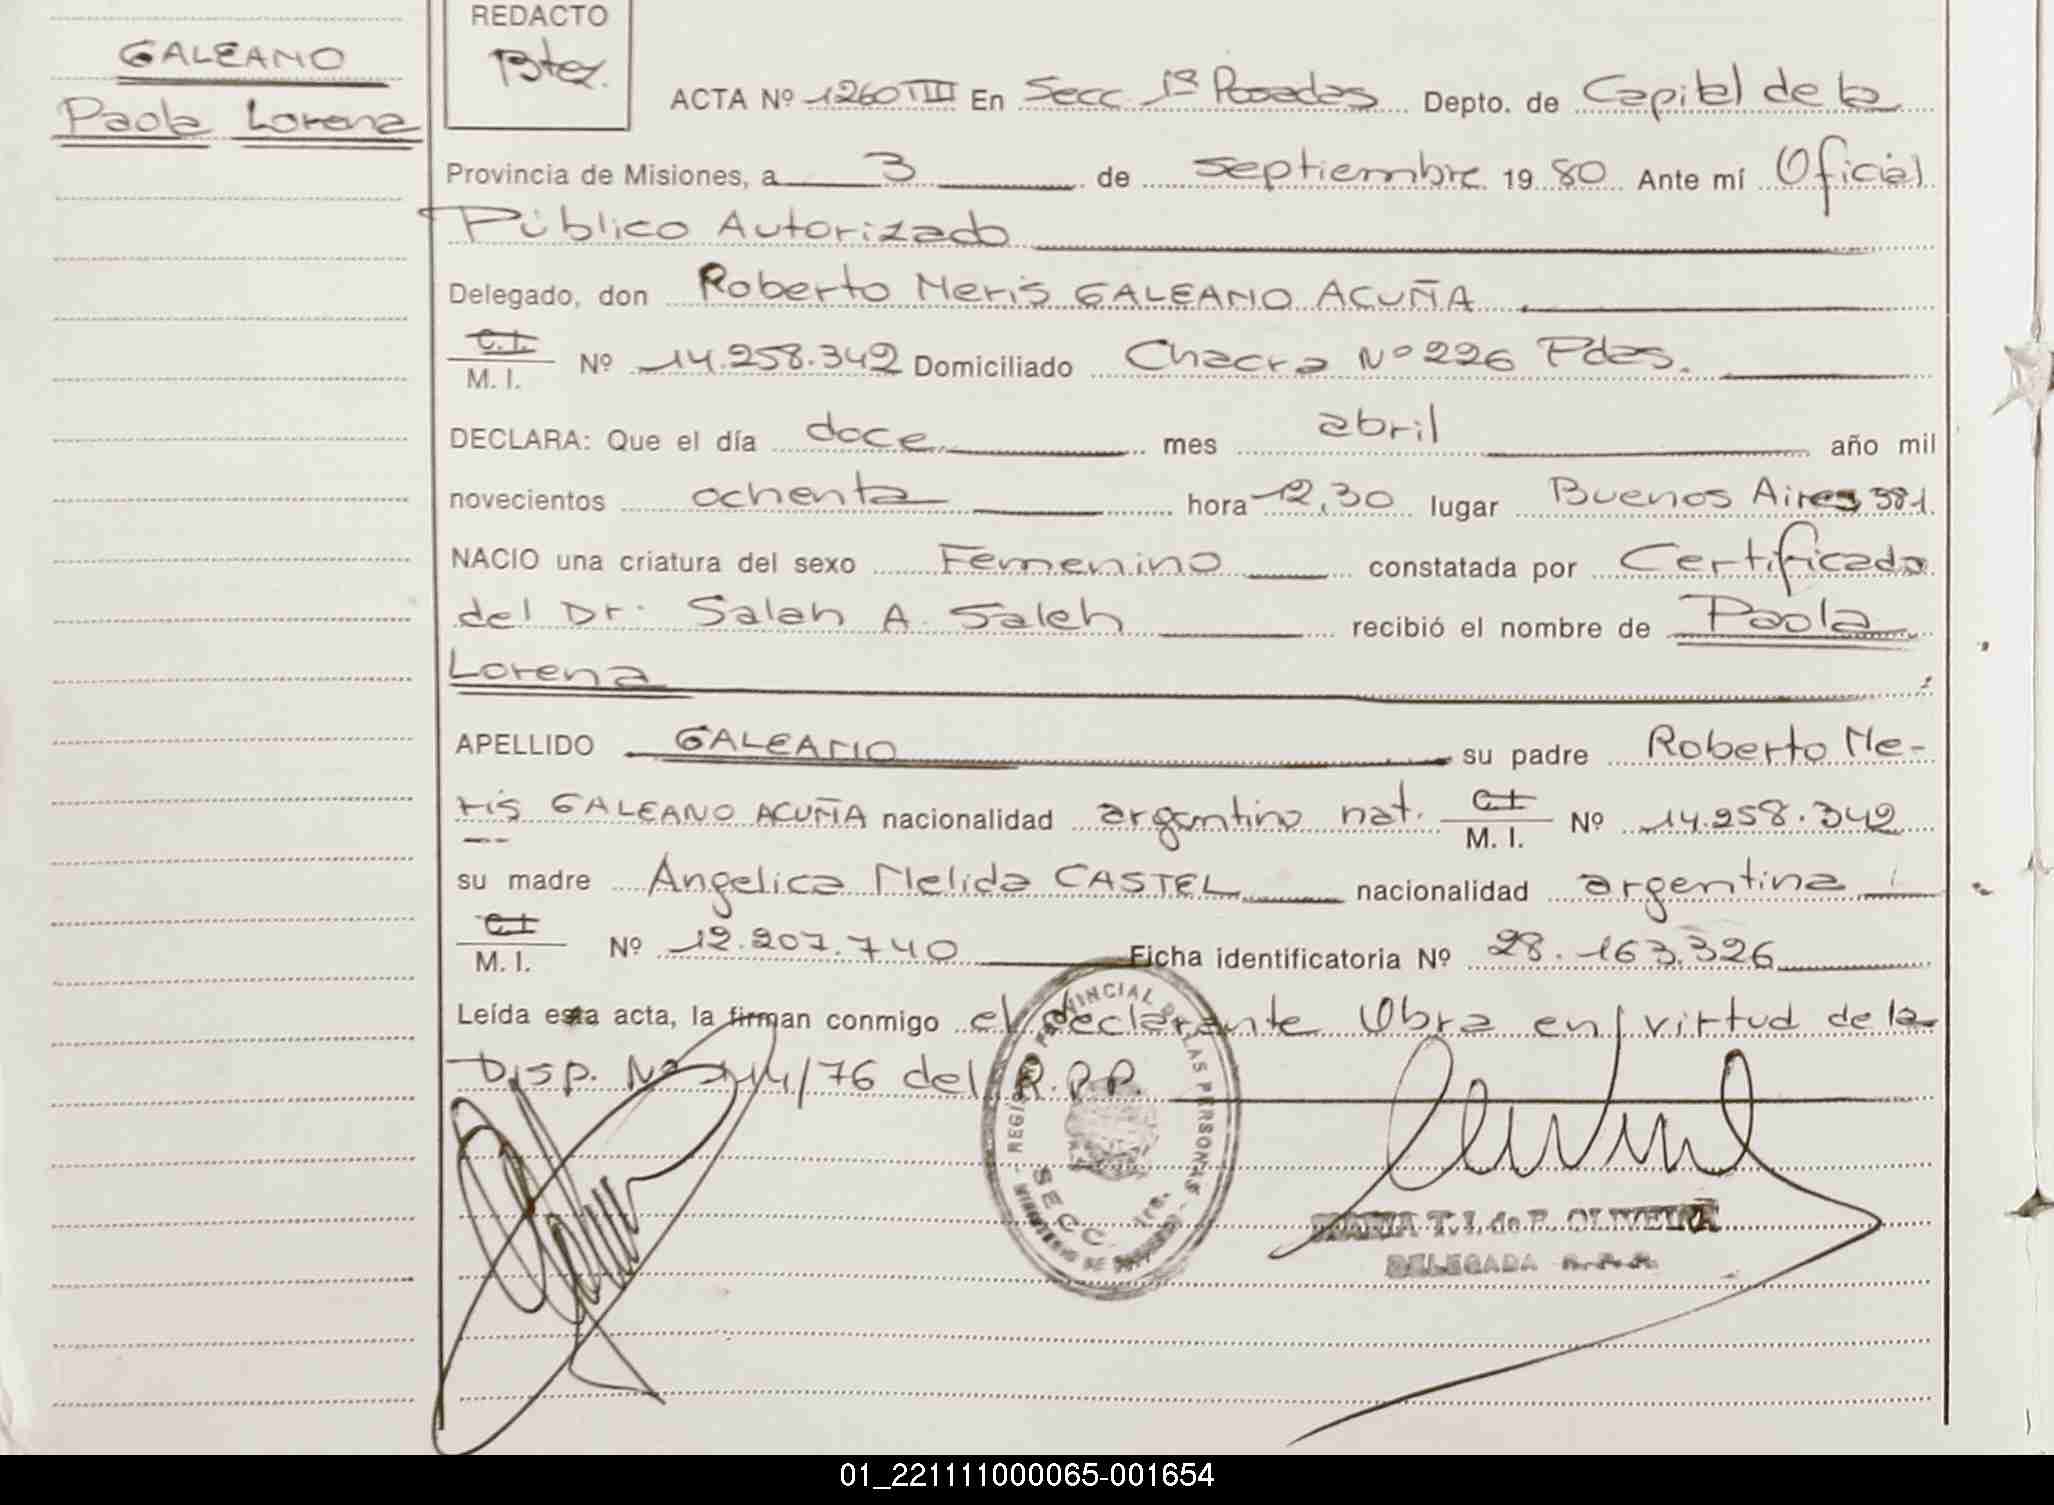 GALEANO
Paola Lorena
REDACTO
Btez.
ACTA Nº 1260 TIII En Secc. 1ª Posadas Depto. de Capital de la
Provincia de Misiones, a 3 de septiembre 19 80 Ante mí Oficial
Público Autorizado
Delegado, don Roberto Neris GALEANO ACUÑA
C.I. M. I. Nº 14.258.342 Domiciliado Chacra Nº 226 Pdas.
DECLARA: Que el día doce mes abril año mil
novecientos ochenta hora 12,30 lugar Buenos Aires 381.
NACIO una criatura del sexo Femenino constatada por Certificado
del Dr. Salah A. Saleh recibió el nombre de Paola
Lorena
APELLIDO GALEANO su padre Roberto Ne-
ris GALEANO ACUÑA nacionalidad argentino nat. C.I M. I. Nº 14.258.342
su madre Angelica Nelida CASTEL nacionalidad argentina
C.I M. I. Nº 12.207.740 Ficha identificatoria Nº 28.163.326
Leída esta acta, la firman conmigo el declarante Obra en virtud de la
Disp. Nº /76 del R.P.P.
REGISTRO PROVINCIAL DE LAS PERSONAS
SECC. 1ra.
MINISTERIO DE GOBIERNO
MARIA T. I. de F. OLIVEIRA
DELEGADA R.P.P.
01_221111000065-001654